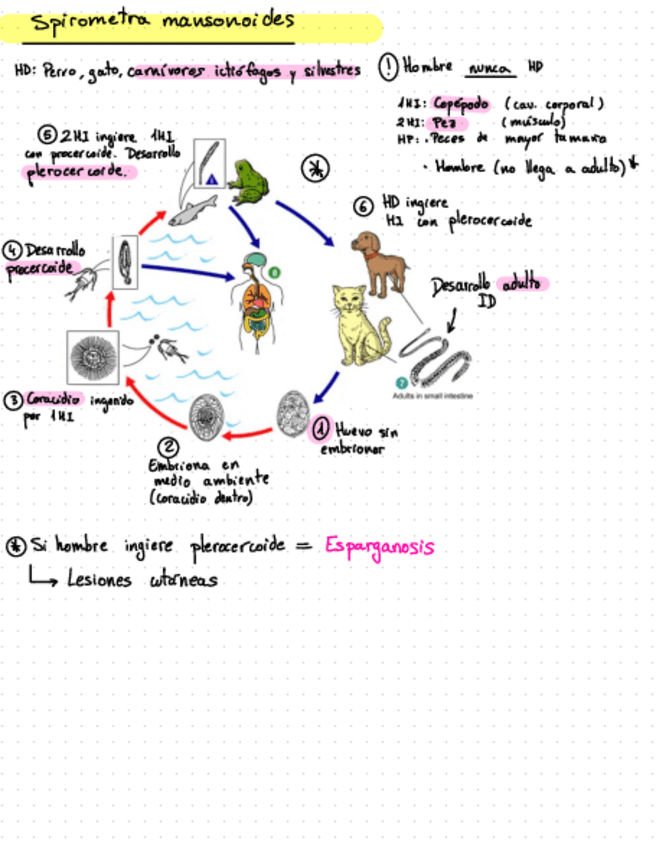 Spirometra mansonoides
HD: Perro, gato, carnívoros ictiófagos y silvestres
! Hombre nunca HD
1HI: Copépodo (cav. corporal)
2HI: Pez (músculo)
HP: · Peces de mayor tamaño
· Hombre (no llega a adulto)*
5 2HI ingiere 1HI
con procercoide. Desarrollo
plerocercoide.
*
6 HD ingiere
HI con plerocercoide
4 Desarrollo
procercoide
Desarrollo adulto
ID
8
7
Adults in small intestine
3 Coracidio ingerido
por 1HI
1 Huevo sin
embrionar
2
Embriona en
medio ambiente
(coracidio dentro)
* Si hombre ingiere plerocercoide = Esparganosis
↳ Lesiones cutáneas